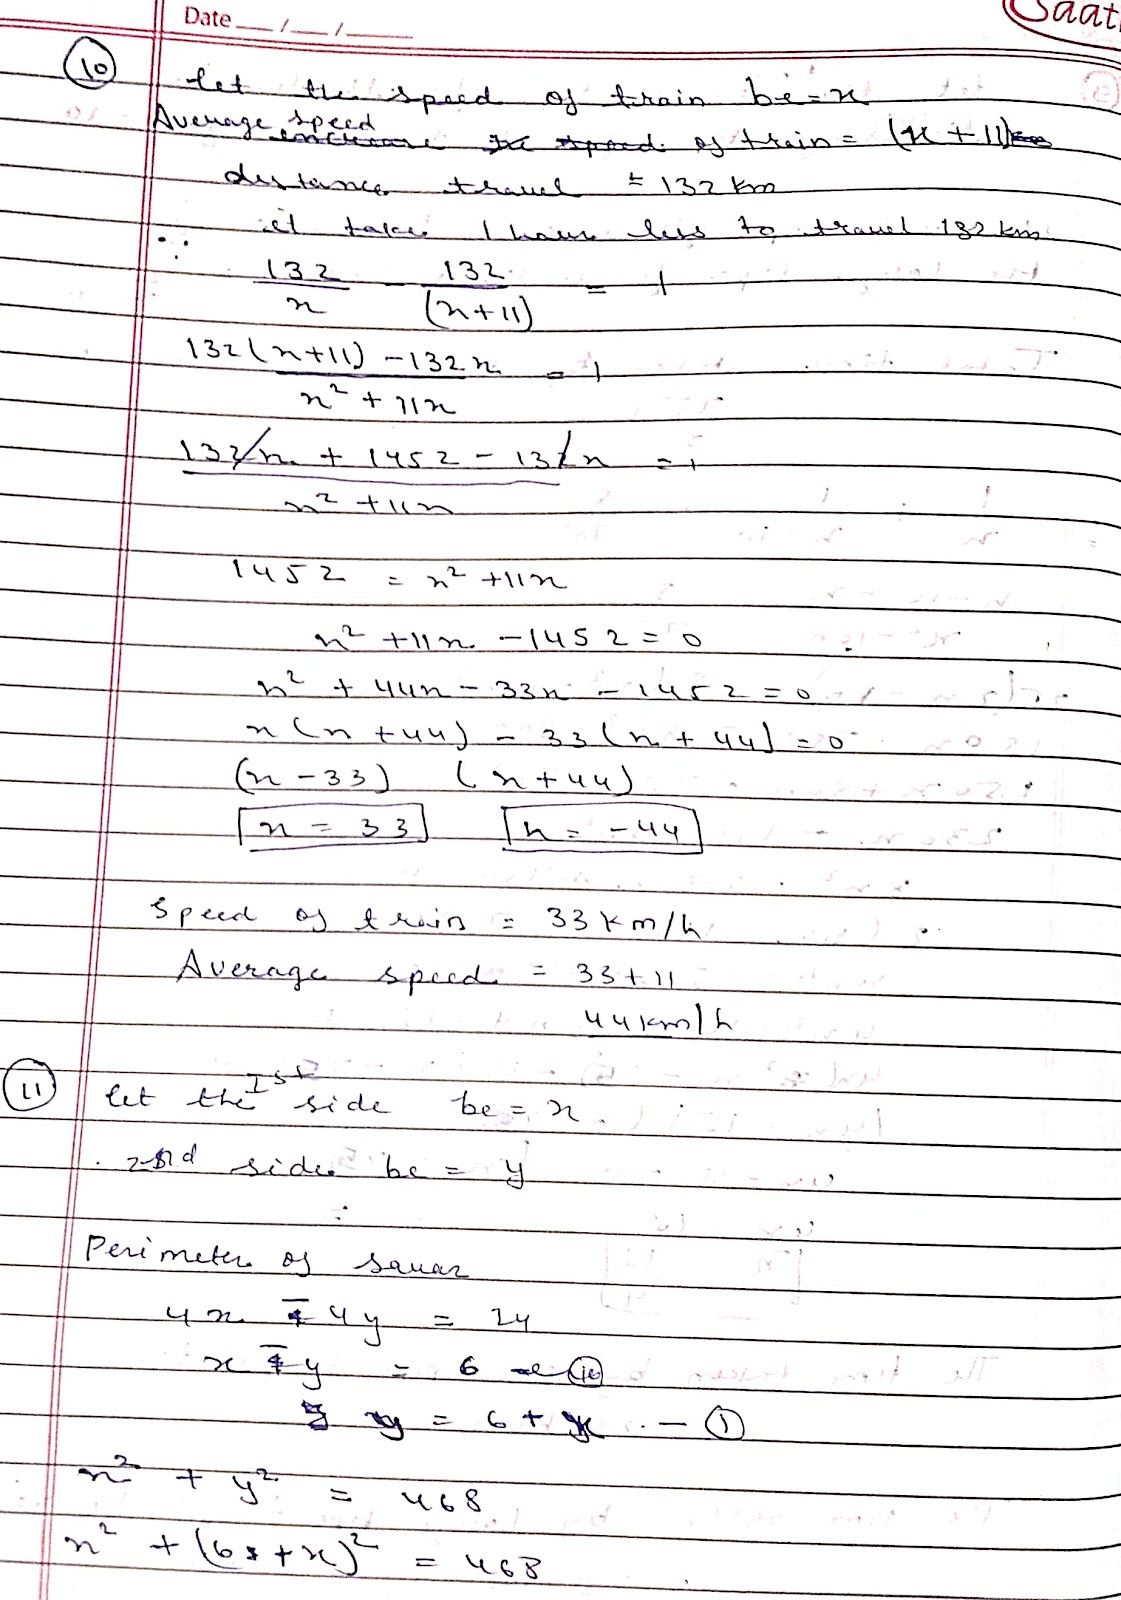 Date __/__/____
Saat
10
let the speed of train be = x
Average speed of train = (x + 11)
distance travel = 132 km
it takes 1 hour less to travel 132 km
∴ 132/x - 132/(x+11) = 1
132(x+11) - 132x / x² + 11x = 1
132x + 1452 - 132x / x² + 11x = 1
1452 = x² + 11x
x² + 11x - 1452 = 0
x² + 44x - 33x - 1452 = 0
x(x + 44) - 33(x + 44) = 0
(x - 33) (x + 44)
x = 33 x = -44
Speed of train = 33 km/h
Average speed = 33 + 11
44 km/h
11
let the Ist side be = x.
2nd side be = y
Perimeter of
4x - 4y = 24
x - y = 6
y = 6 + x - ①
x² + y² = 468
x² + (6 + x)² = 468